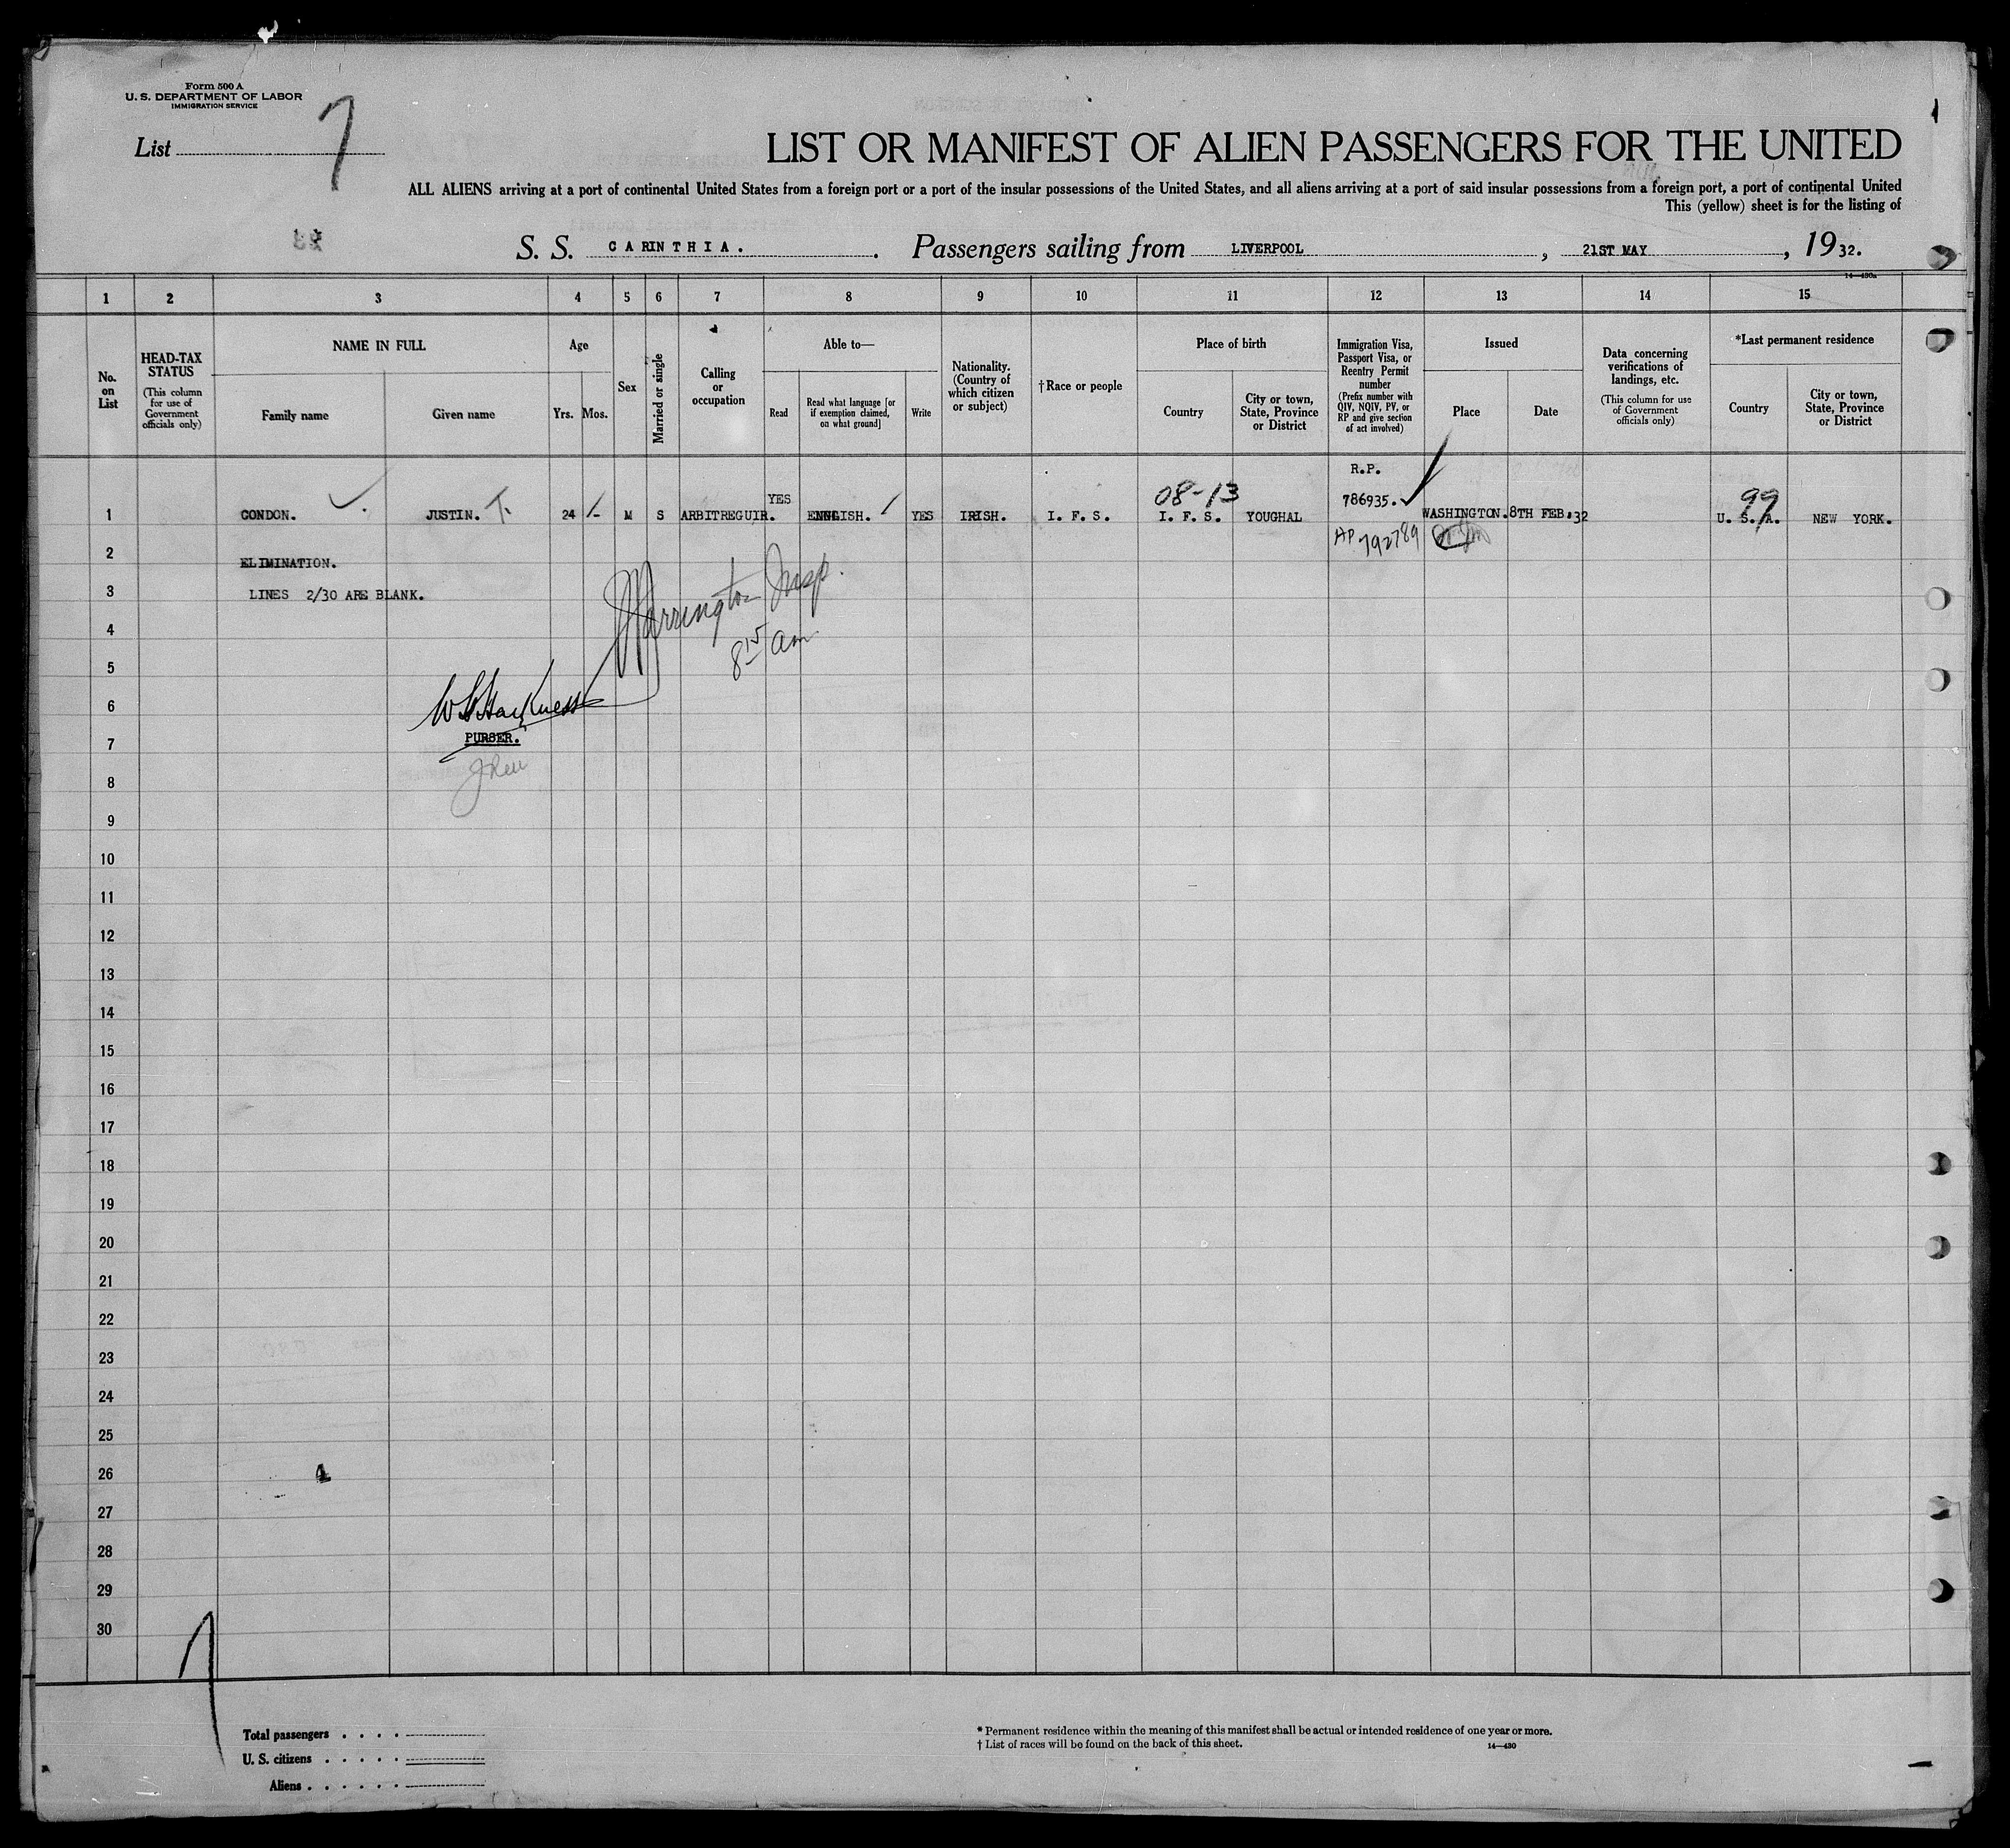 Form 500 A
U. S. DEPARTMENT OF LABOR
IMMIGRATION SERVICE
List 7
LIST OR MANIFEST OF ALIEN PASSENGERS FOR THE UNITED
ALL ALIENS arriving at a port of continental United States from a foreign port or a port of the insular possessions of the United States, and all aliens arriving at a port of said insular possessions from a foreign port, a port of continental United
This (yellow) sheet is for the listing of
S. S. CARINTHIA. Passengers sailing from LIVERPOOL, 21ST MAY, 1932.
14—430a
1 2 3 4 5 6 7 8 9 10 11 12 13 14 15
No. on List
HEAD-TAX STATUS (This column for use of Government officials only)
NAME IN FULL
Family name
Given name
Age
Yrs. Mos.
Sex
Married or single
Calling or occupation
Able to—
Read
Read what language [or if exemption claimed, on what ground]
Write
Nationality. (Country of which citizen or subject)
†Race or people
Place of birth
Country
City or town, State, Province or District
Immigration Visa, Passport Visa, or Reentry Permit number (Prefix number with QIV, NQIV, PV, or RP and give section of act involved)
Issued
Place
Date
Data concerning verifications of landings, etc. (This column for use of Government officials only)
*Last permanent residence
Country
City or town, State, Province or District
R.P.
YES 08-13 786935. 99
1 CONDON. JUSTIN. T. 24 M S ARBITREGUIR. ENGLISH. YES IRISH. I. F. S. I. F. S. YOUGHAL WASHINGTON. 8TH FEB.32 U. S. A. NEW YORK.
AP 792789
2 ELIMINATION.
3 LINES 2/30 ARE BLANK.
Harrington Insp.
4
8 15 am
5
6 W Harkness
7 PURSER.
8
9
10
11
12
13
14
15
16
17
18
19
20
21
22
23
24
25
26
27
28
29
30
Total passengers . . . .
U. S. citizens . . . . .
Aliens . . . . . .
* Permanent residence within the meaning of this manifest shall be actual or intended residence of one year or more.
† List of races will be found on the back of this sheet. 14—430